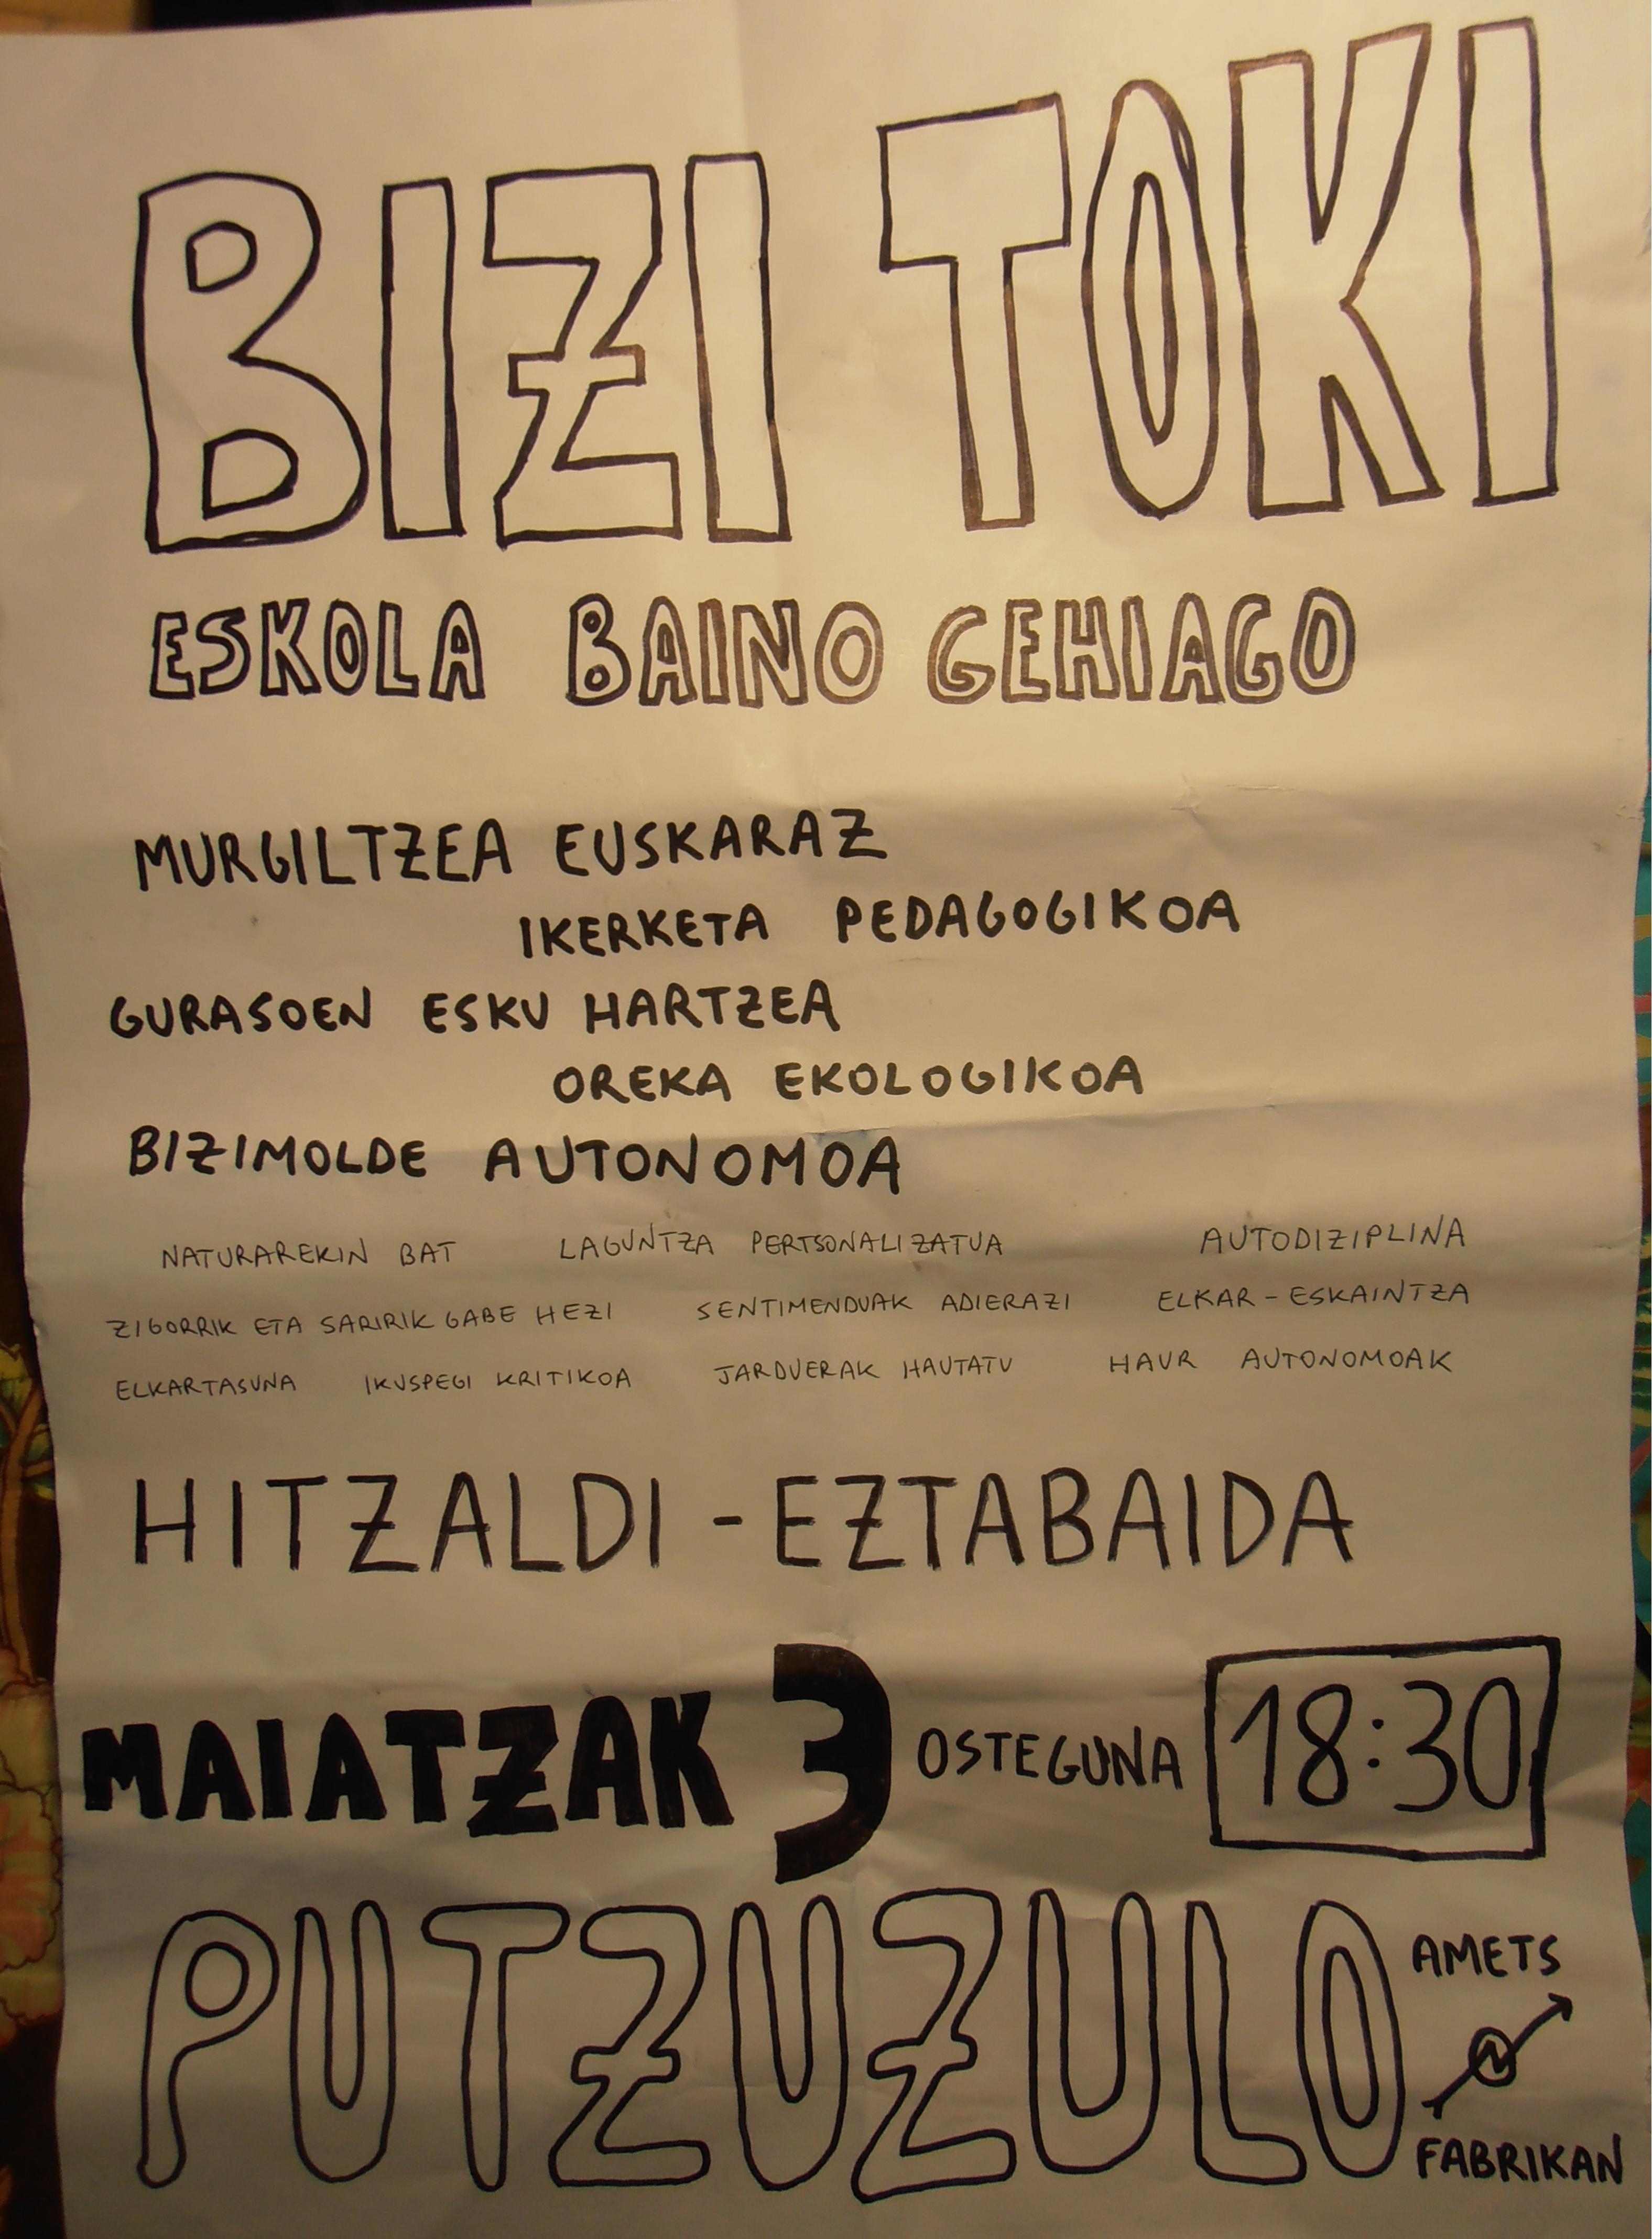 BIZI TOKI
ESKOLA BAINO GEHIAGO
MURGILTZEA EUSKARAZ
IKERKETA PEDAGOGIKOA
GURASOEN ESKU HARTZEA
OREKA EKOLOGIKOA
BIZIMOLDE AUTONOMOA
NATURAREKIN BAT LAGUNTZA PERTSONALIZATUA AUTODIZIPLINA
ZIGORRIK ETA SARIRIK GABE HEZI SENTIMENDUAK ADIERAZI ELKAR-ESKAINTZA
ELKARTASUNA IKUSPEGI KRITIKOA JARDUERAK HAUTATU HAUR AUTONOMOAK
HITZALDI-EZTABAIDA
MAIATZAK 3 OSTEGUNA 18:30
PUTZUZULO
AMETS
FABRIKAN